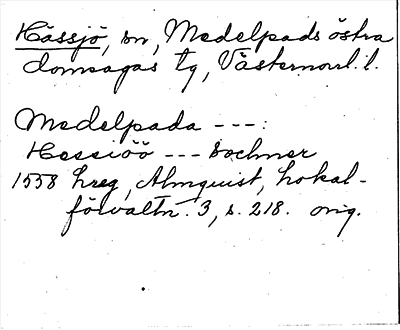 Hässjö, sn, Medelpads östra
domsagas tg, Västernorrl. l.
Medelpada ---:
Hessiöö --- Sochner
1558 hreg, Almquist, Lokal-
förvaltn. 3, s. 218. orig.